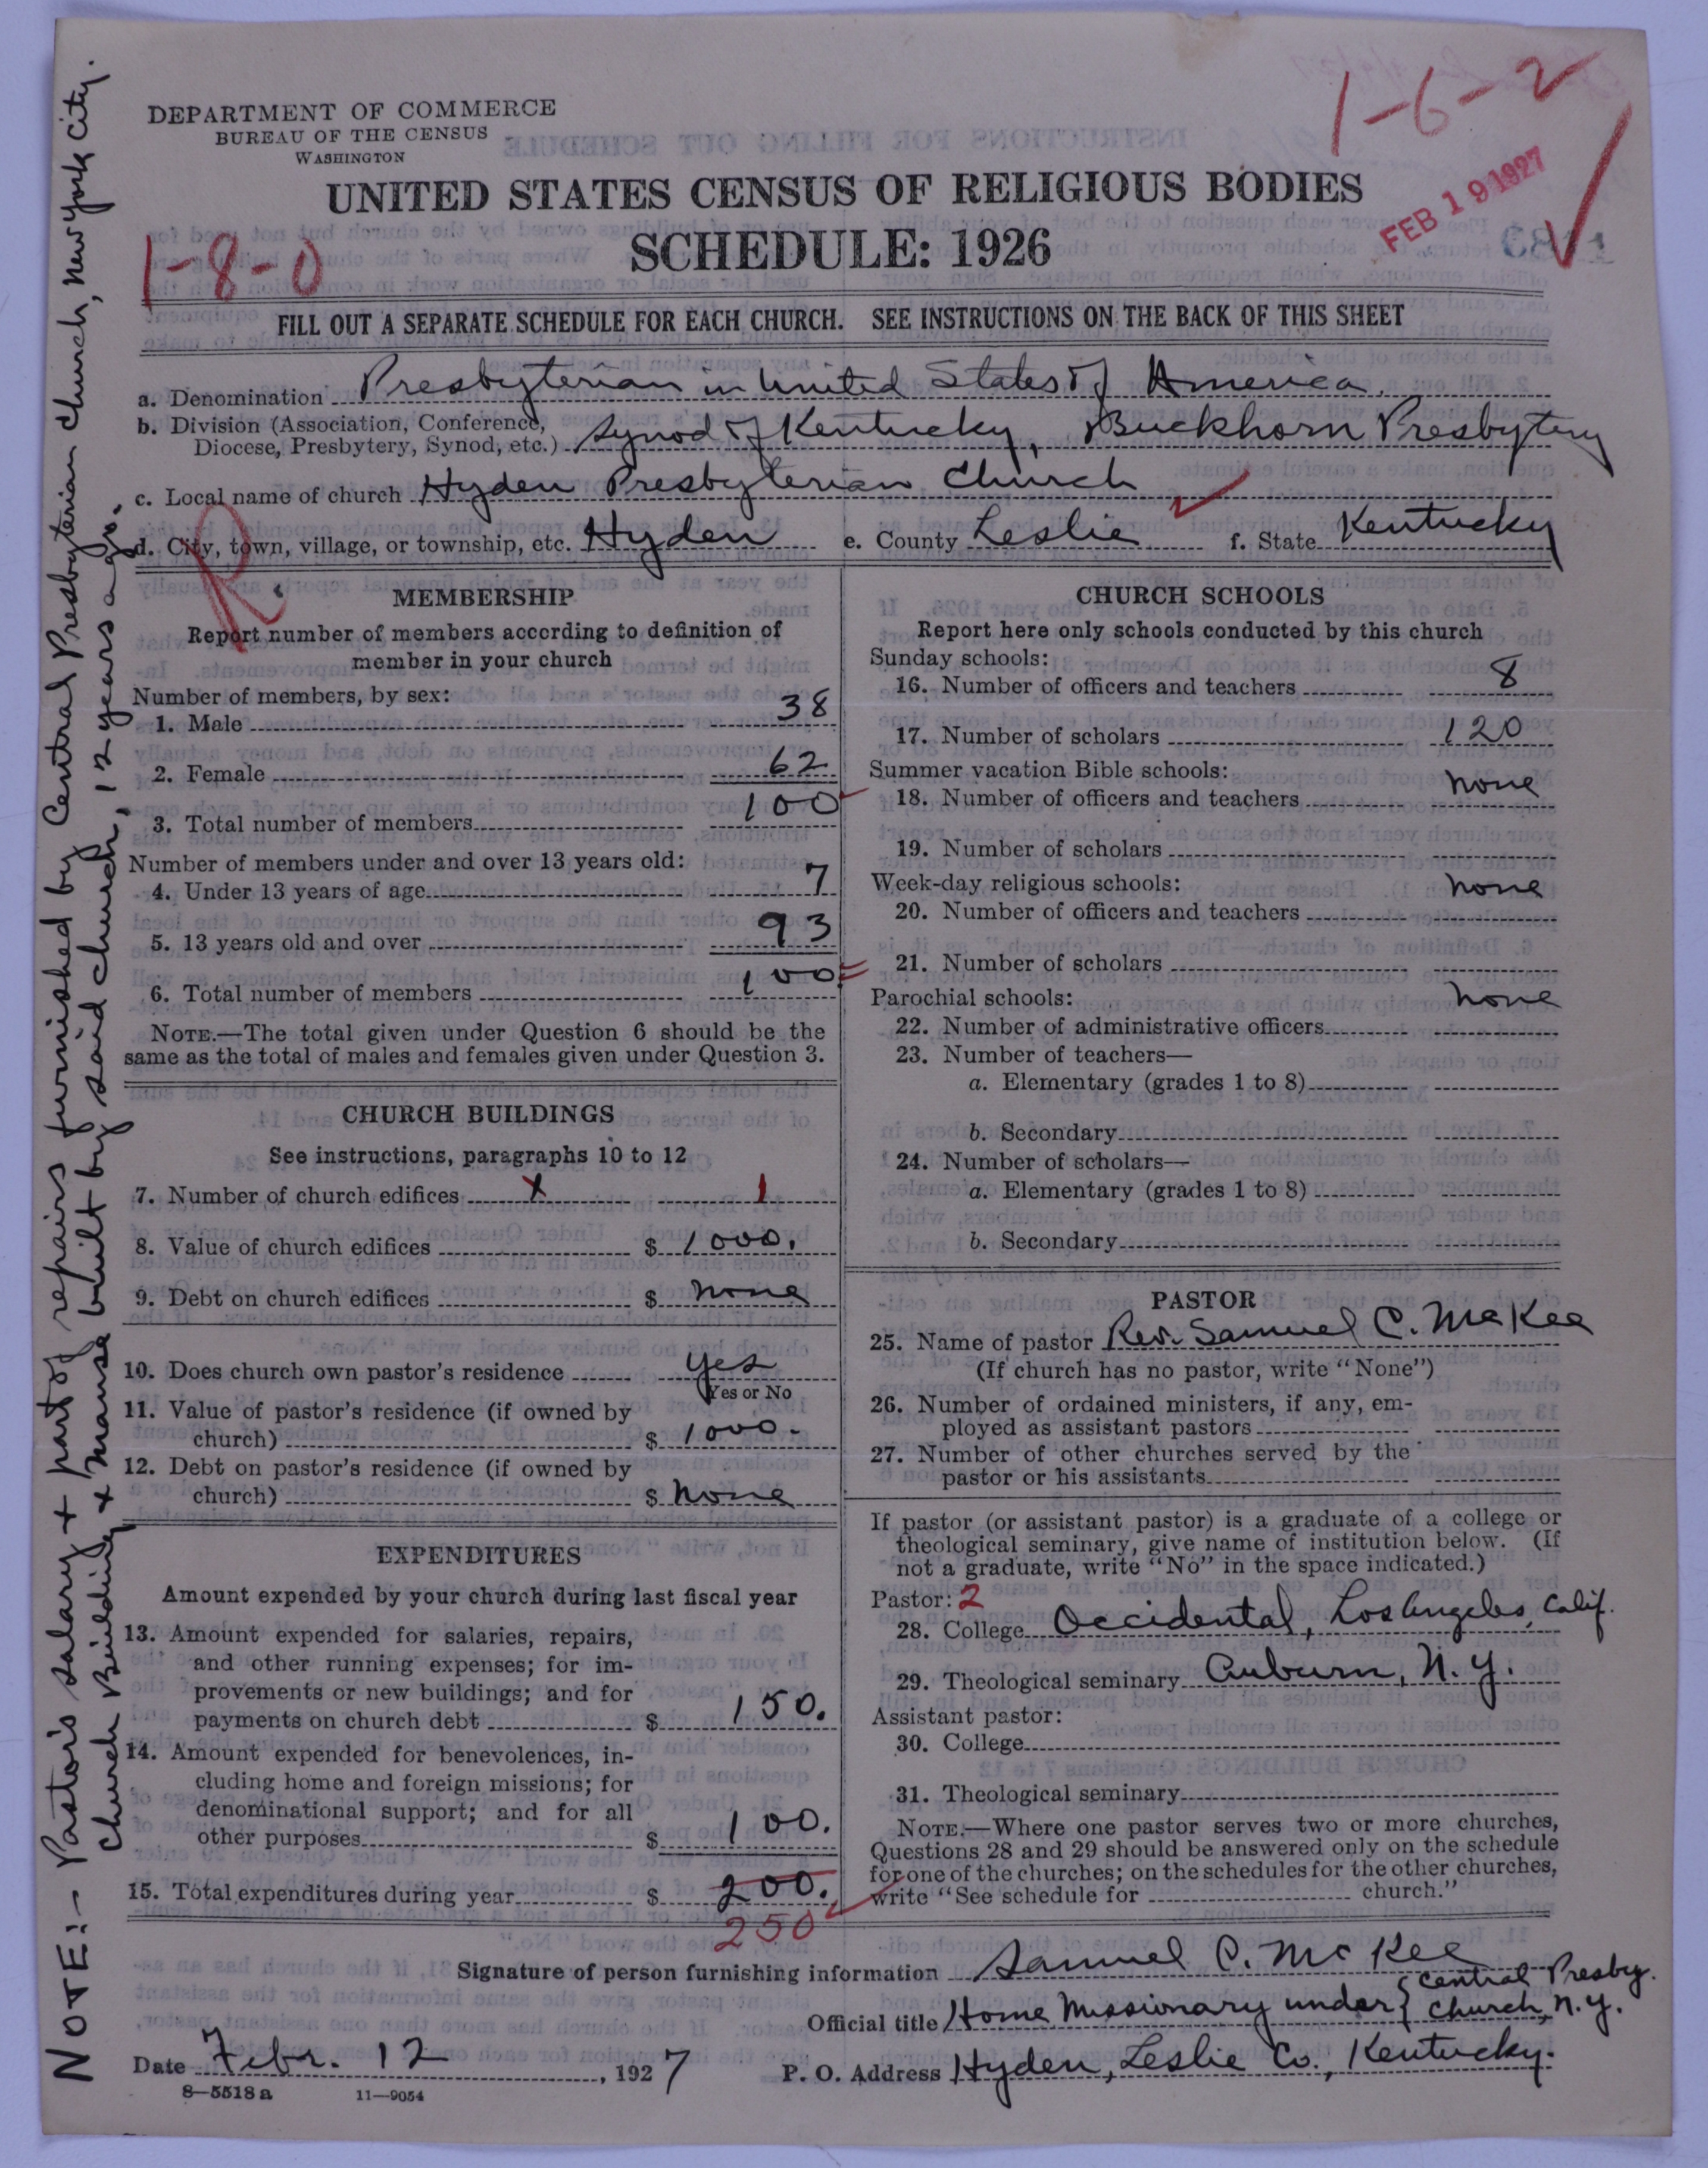 1-6-2
DEPARTMENT OF COMMERCE
BUREAU OF THE CENSUS
WASHINGTON
UNITED STATES CENSUS OF RELIGIOUS BODIES
FEB 19 1927
SCHEDULE: 1926
1-8-0
FILL OUT A SEPARATE SCHEDULE FOR EACH CHURCH. SEE INSTRUCTIONS ON THE BACK OF THIS SHEET
a. Denomination Presbyterian in United States of America.
b. Division (Association, Conference,
Diocese, Presbytery, Synod, etc.) Synod of Kentucky, Buckhorn Presbytery
c. Local name of church Hyden Presbyterian Church
d. City, town, village, or township, etc. Hyden e. County Leslie f. State Kentucky
R.
MEMBERSHIP
Report number of members according to definition of
member in your church
Number of members, by sex:
1. Male 38
2. Female 62
3. Total number of members 100
Number of members under and over 13 years old:
4. Under 13 years of age 7
5. 13 years old and over 93
6. Total number of members 100
NOTE.—The total given under Question 6 should be the
same as the total of males and females given under Question 3.
CHURCH BUILDINGS
See instructions, paragraphs 10 to 12
7. Number of church edifices x 1
8. Value of church edifices $ 1000.
9. Debt on church edifices $ none
10. Does church own pastor's residence yes
Yes or No
11. Value of pastor's residence (if owned by
church) $ 1000.
12. Debt on pastor's residence (if owned by
church) $ none
EXPENDITURES
Amount expended by your church during last fiscal year
13. Amount expended for salaries, repairs,
and other running expenses; for im-
provements or new buildings; and for
payments on church debt $ 150.
14. Amount expended for benevolences, in-
cluding home and foreign missions; for
denominational support; and for all
other purposes $ 100.
15. Total expenditures during year $ 200.
250
CHURCH SCHOOLS
Report here only schools conducted by this church
Sunday schools:
16. Number of officers and teachers 8
17. Number of scholars 120
Summer vacation Bible schools:
18. Number of officers and teachers none
19. Number of scholars
Week-day religious schools:
20. Number of officers and teachers none
21. Number of scholars
Parochial schools:
22. Number of administrative officers none
23. Number of teachers—
a. Elementary (grades 1 to 8)
b. Secondary
24. Number of scholars—
a. Elementary (grades 1 to 8)
b. Secondary
PASTOR
25. Name of pastor Rev. Samuel C. McKee
(If church has no pastor, write "None")
26. Number of ordained ministers, if any, em-
ployed as assistant pastors
27. Number of other churches served by the
pastor or his assistants
If pastor (or assistant pastor) is a graduate of a college or
theological seminary, give name of institution below. (If
not a graduate, write "No" in the space indicated.)
Pastor: 2
28. College Occidental, Los Angeles, Calif.
29. Theological seminary Auburn, N.Y.
Assistant pastor:
30. College
31. Theological seminary
NOTE.—Where one pastor serves two or more churches,
Questions 28 and 29 should be answered only on the schedule
for one of the churches; on the schedules for the other churches,
write "See schedule for church."
Signature of person furnishing information Samuel C. McKee
Official title Home Missionary under { Central Presby.
Church, N.Y.
Date Febr. 12, 1927 P. O. Address Hyden, Leslie Co., Kentucky.
8—5518 a 11—9054
NOTE:- Pastor's salary + part of repairs furnished by Central Presbyterian Church, New York City.
Church Building + manse built by said church, 12 years ago.